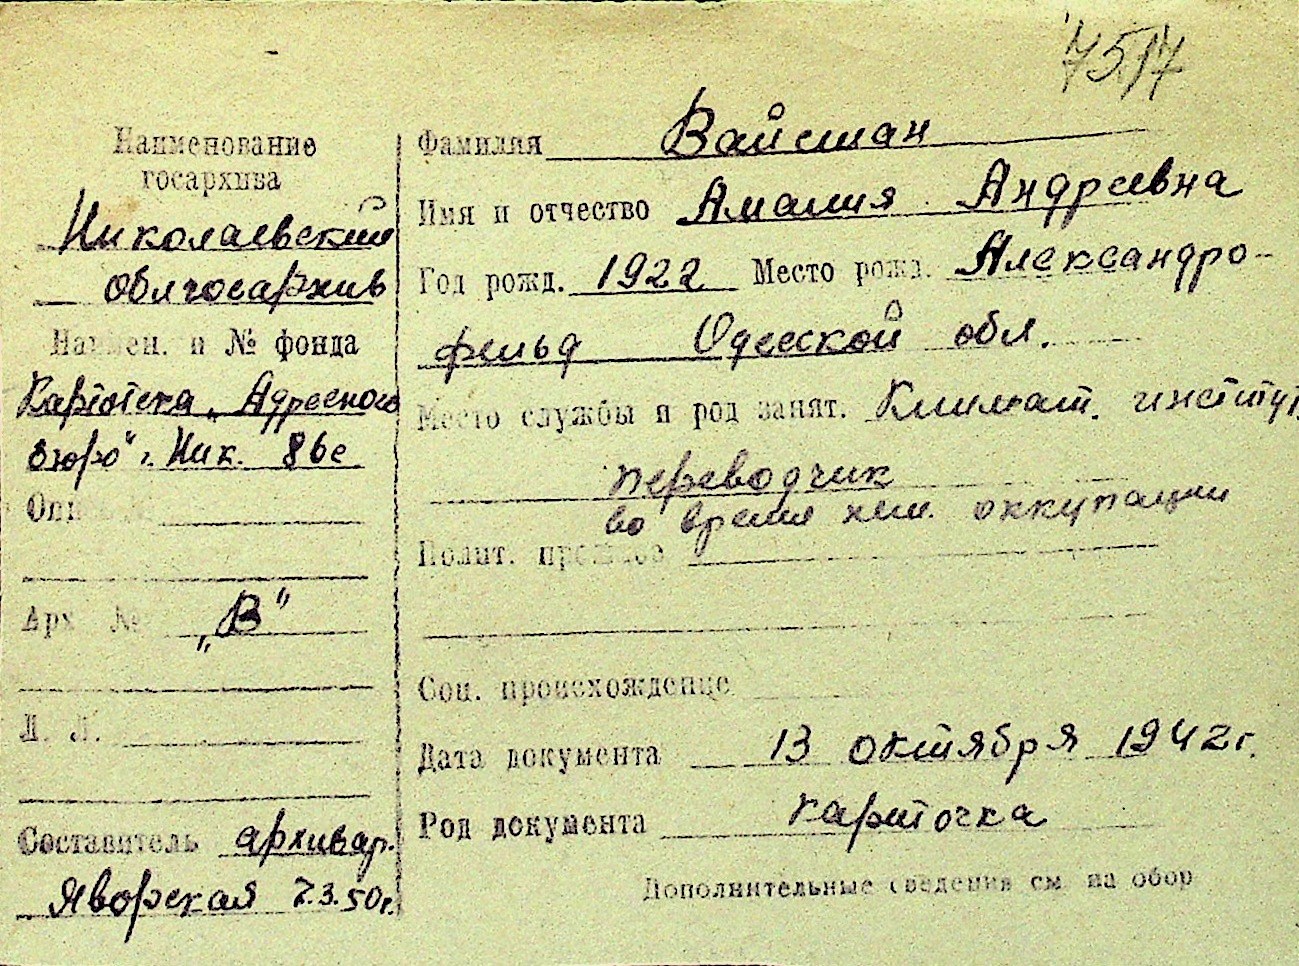 7517
Наименование
госархива
Николаевский
облгосархив
Наимен. и № фонда
Картотека „Адресного
бюро" г. Ник. 86с
Опись №
Арх. № „В"
Л. Л.
Составитель архивар.
Яворская 7.3.50г.
Фамилия Вайсман
Имя и отчество Амалия Андреевна
Год рожд. 1922 Место рожд. Александро-
фельд Одесской обл.
Место службы и род занят. Климат. институт
переводчик
во время нем. оккупации
Полит. прошлое
Соц. происхождение
Дата документа 13 октября 1942г.
Род документа карточка
Дополнительные сведения см. на обор